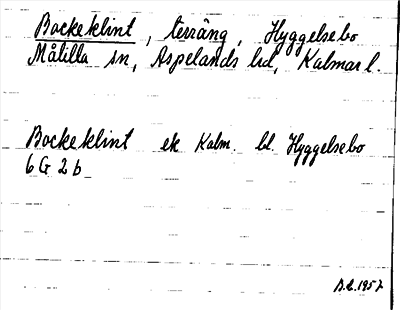 Bockeklint, terräng, Hyggelsebo
Målilla sn, Aspelands hd, Kalmar l.
Bockeklint ek Kalm. bl. Hyggelsebo
6 G 2 b
B.L. 1957